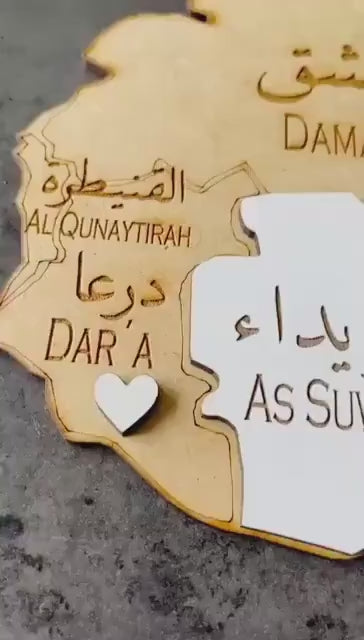 شق
DAMA
القنيطرة
AL QUNAYTIRAH
درعا
DAR'A
يداء
AS SUW